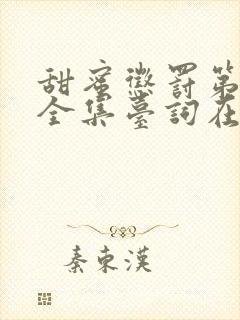 甜蜜懲罰第
全集臺詞在
秦東漢